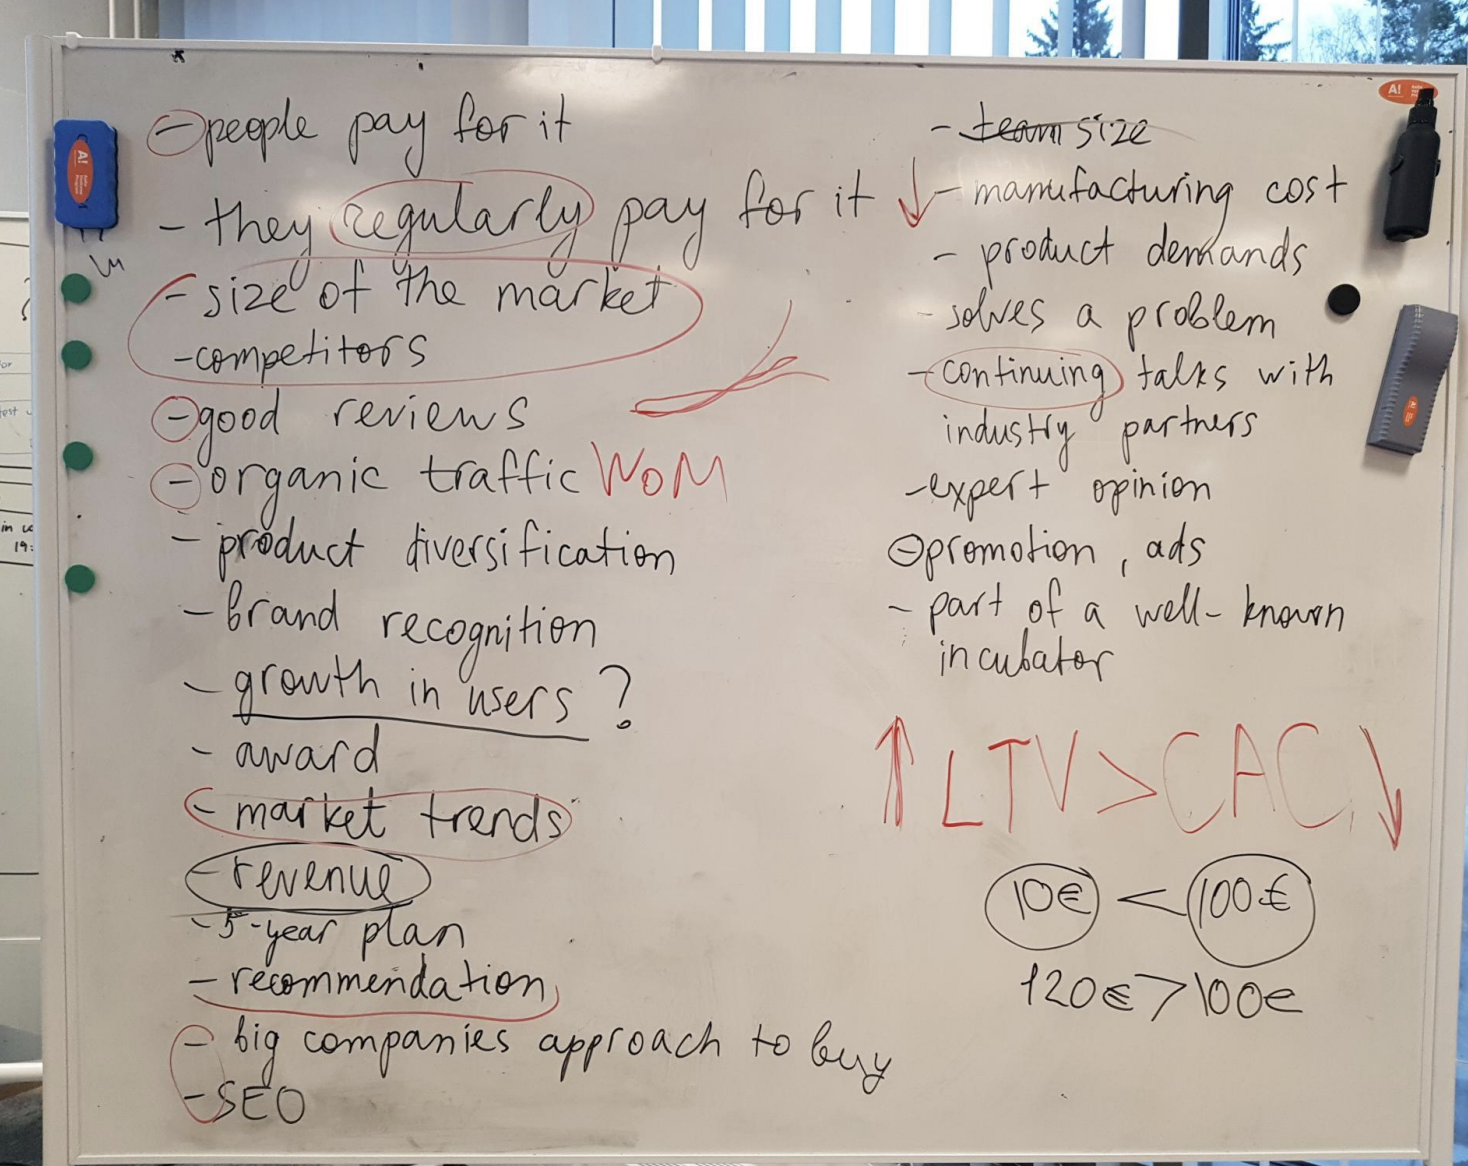 - people pay for it
- they regularly pay for it
- size of the market
- competitors
- good reviews
- organic traffic WoM
- product diversification
- brand recognition
- growth in users ?
- award
- market trends
- revenue
- 5-year plan
- recommendation
- big companies approach to buy
- SEO
- team size
↓ - manufacturing cost
- product demands
- solves a problem
- continuing talks with
industry partners
- expert opinion
- promotion, ads
- part of a well-known
incubator
↑ LTV > CAC ↓
10€ < 100€
120€ > 100€
A!
A!
A!